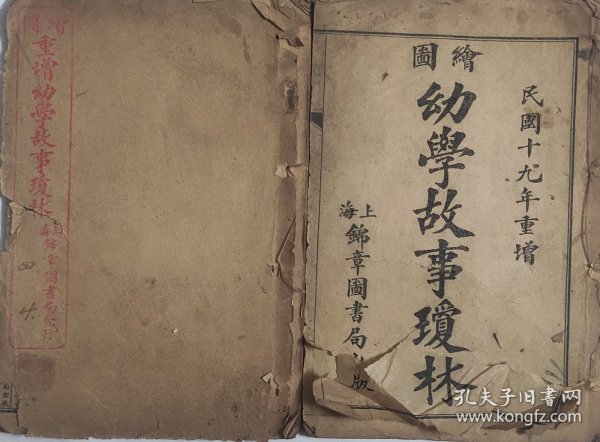 重增幼學故事瓊林
上海錦章圖書局
民國十九年重增
繪圖
幼學故事瓊林
上海
錦章圖書局
版
孔夫子旧书网
www.kongfz.com